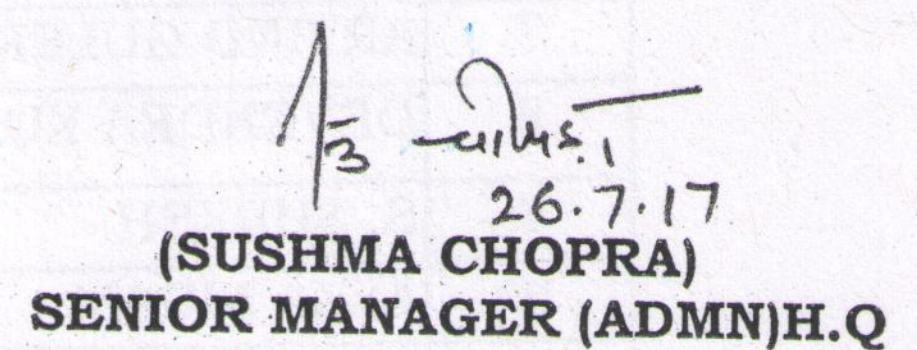 26.7.17
(SUSHMA CHOPRA)
SENIOR MANAGER (ADMN)H.Q